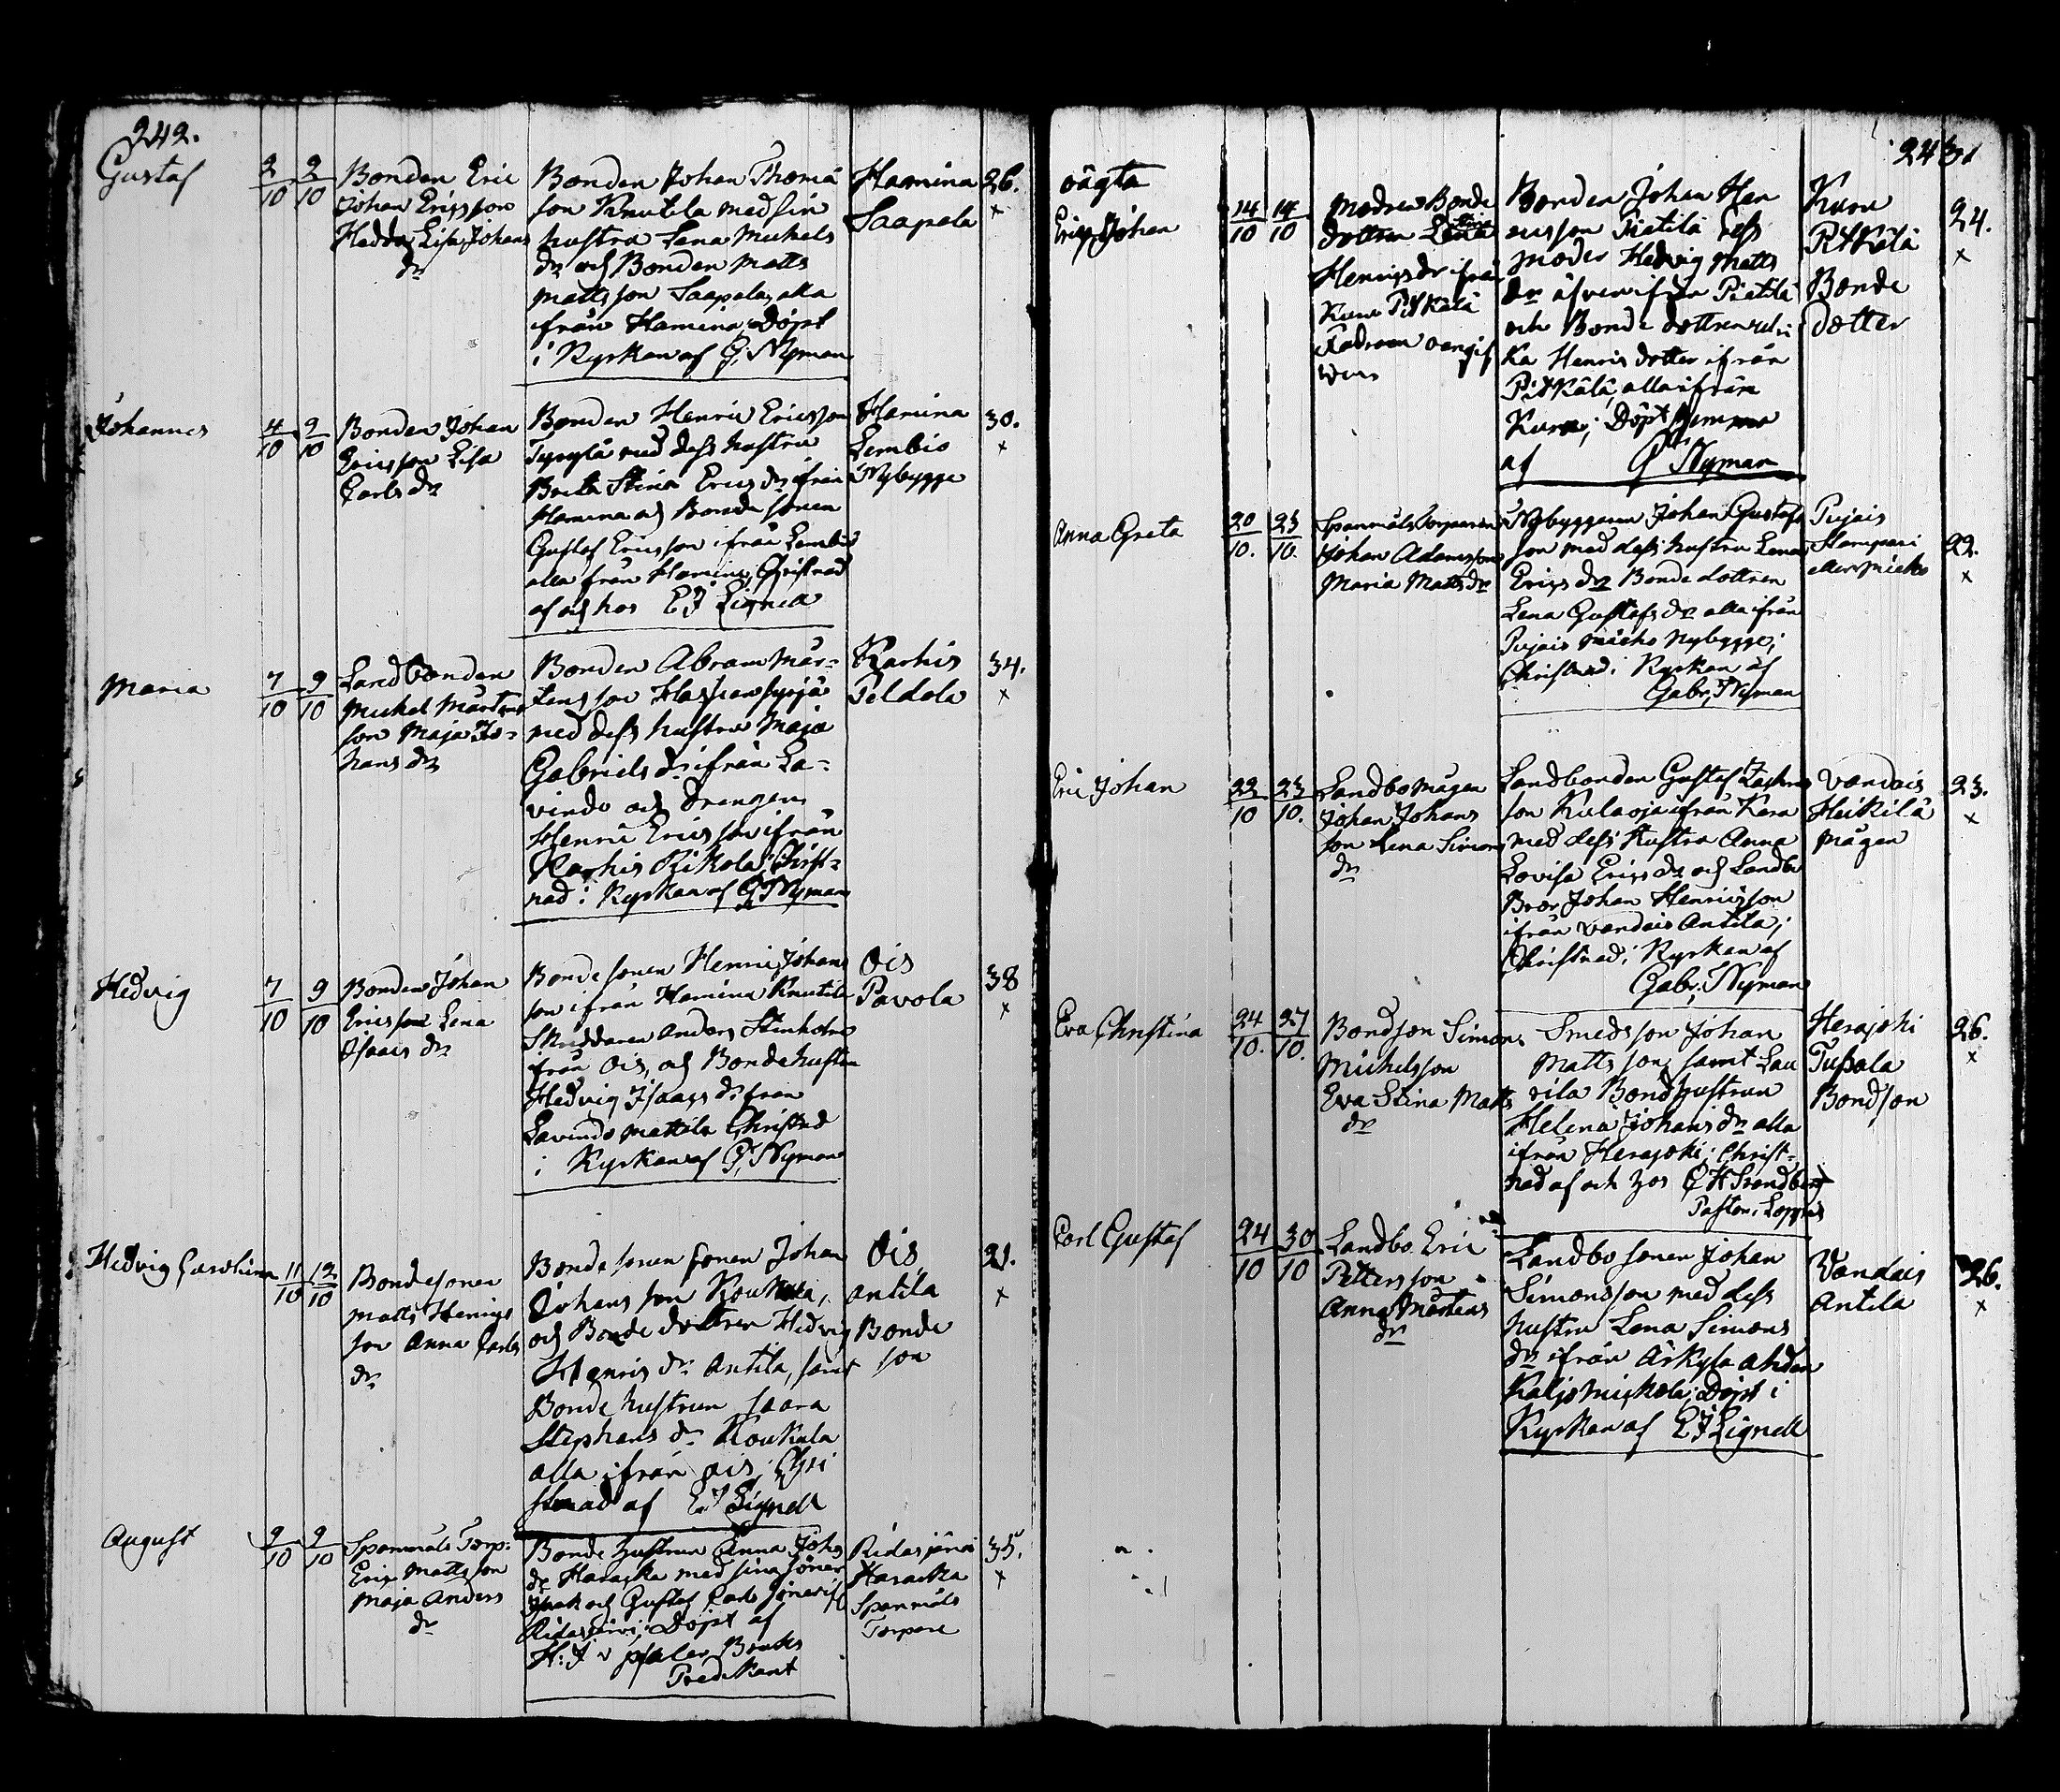 242.
Gustaf 2/10 2/10 Bonden Eric
Johan Ericsson
Hedda Lisa Johans
dr
Bonden Johan Thoma
son Knutila med sin
hustru Lena Michels
dr och Bonden Matts
Mattsson Saapala, alla
ifrån Hamina; Döpt
i Kyrkan af G. Nyman
Hamina
Saapala
26.
x
Johannes 4/10 9/10 Bonden Johan
Ericsson Lisa
Carls dr
Bonden Henric Ericsson
med dess hustru
Brita Stina Erics dr ifrån
Hamina och Bonde sonen
Gustaf Ericsson ifrån Lembio
alla från Hamina, Christnad
af och hos E J Lignell
Hamina
Lembio
Nybygge
30.
x
Maria 7/10 9/10 Landbonden
Michel Mårtens
son Maja Jo-
hans dr
Bonden Abram Mår-
tensson
med dess hustru Maja
Gabriels dr ifrån La-
vindo och Drengen
Henric Ericsson ifrån
Karhis Rikola; Christ-
nad i Kyrkan af G Nyman
Karhis
Peldola
34.
x
Hedvig 7/10 9/10 Bonden Johan
Ericsson Lena
Isaacs dr
Bonde sonen Henric Johans
son ifrån Hamina Knutila
Skreddaren Anders Stenholm
ifrån Ois, och Bonde hustru
Hedvig Isaacs dr ifrån
Lavindo Mattila Christnad
i Kyrkan af G, Nyman
Ois
Pavola
38
x
Hedvig Carolina 11/10 12/10 Bondesonen
Matts Henrics
son Anna Carls
dr
Bonde sonen sonen Johan
Johans son Koukula,
och Bonde dottren Hedvig
Henrics dr Antila, samt
Bonde hustrun Saara
Stephans dr Koukula
alla ifrån Ois; Chri
stnad af E J Lignell
Ois
Antila
Bonde
son
21.
x
August 9/10 9/10 Spanmåls Torp:
Eric Mattsson
Maja Anders
dr
Bonde hustrun Anna Johs
dr Haracka med sina söner
Isaak och Gustaf Carls söner
Ridasjärvi; Döpt af
H: J v Pfaler Bruks
Predikant
Ridasjärvi
Haracka
Spanmåls
Torpare
35.
x
243.
oägta
Eric Johan 14/10 14/10 Modren Bonde
dottren Lena Stina
Henrics dr ifrån
Kuru Pitkälä
Fadren oangif
ven
Bonden Johan Hen
ricsson Pietilä dess
moder Hedvig Matts
dr äfven ifrån Pietilä
och Bonde dottren Ulri
ka Henrics dotter ifrån
Pitkälä, alla ifrån
Kuru; Döpt hemma
af G Nyman
Kuru
Pitkälä
Bonde
dotter
24.
x
Anna Greta 20/10. 23/10. Spanmåls Torparen
Johan Adamsson
Maria Matts dr
Nybyggaren Johan Gustafs
son med dess hustru Lena
Erics dr Bonde dottren
Lena Gustafs dr alla ifrån
Pujais Mieho Nybygge;
Christnad i Kyrkan af
Gabr, Nyman
Pujais
Stampari
eller Mieho
22.
x
Eric Johan 22/10 23/10. Landbo mågen
Johan Johans
son Lena Simons
dr
Landbonden Gustaf Zachris
son Kulaoja ifrån Kara
med dess Hustru Anna
Lovisa Erics dr och Landbo
Bror Johan Henricsson
ifrån Vandais Antila;
Christnad i Kyrkan af
Gabr, Nyman
Vandais
Heikilä
mågen
23.
x
Eva Christina 24/10. 27/10. Bondson Simon
Michelsson
Eva Stina Matts
dr
Smedsson Johan
Mattsson samt Lau
rila Bondhustrun
Helena Johans dr alla
ifrån Herajoki; Christ-
nad af och hos C H Strandberg
Pastor i Loppis
Herajoki
Tupala
Bondson
26.
x
Carl Gustaf 24/10 30/10 Landbo Eric
Pettersson
Anna Mårtens
dr
Landbo sonen Johan
Simonsson med dess
hustru Lena Simons
dr ifrån Äikyla Ahden
Kaljomickola; Döpt i
Kyrkan af E J Lignell
Vandais
Antila
26.
x